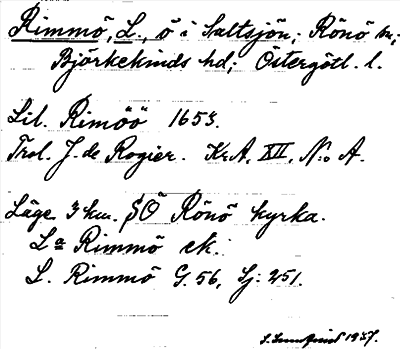 Rimmö, L., ö i Saltsjön; Rönö sn;
Björkekinds hd; Östergötl. l.
Lil. Rimöö 1653.
Trol. J. de Rogier. KrA, XII, N:o A.
Läge 3 km. SÖ Rönö kyrka.
La Rimmö ek.
L. Rimmö G. 56, Sj: 251.
1937.